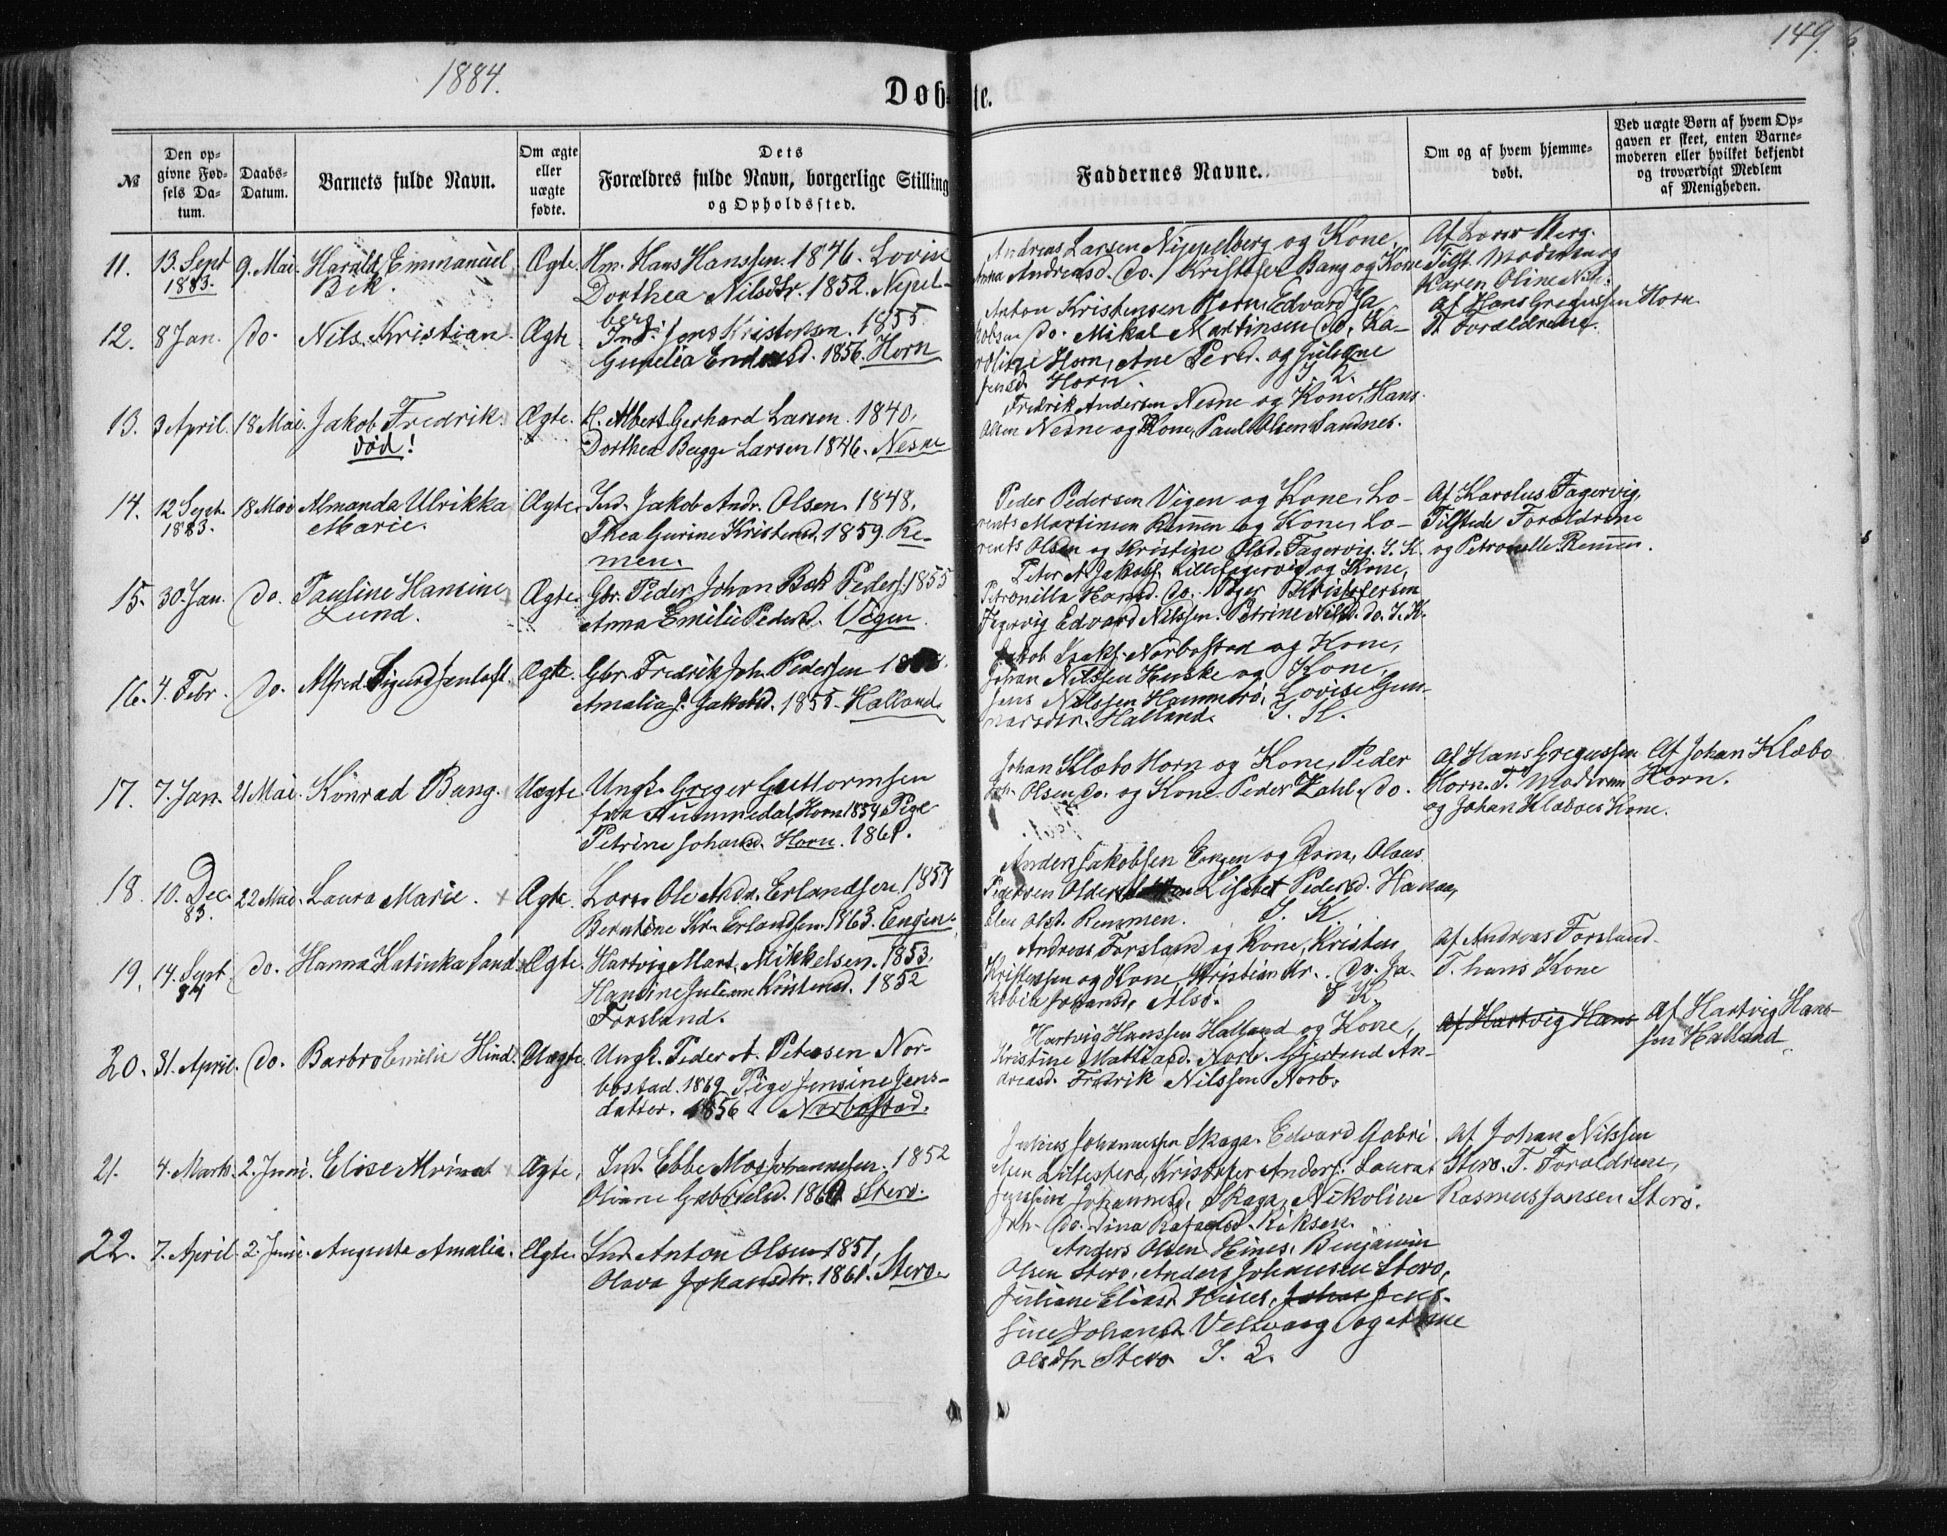 1884.
149.
Døbte.
№
Den op-
givne Fød-
sels Da-
tum.
Daabs-
Datum.
Barnets fulde Navn.
Om ægte
eller
uægte
fødte.
Dets
Forældres fulde Navn, borgerlige Stilling
og Opholdssted.
Faddernes Navne.
Om og af hvem hjemme-
døbt.
Ved uægte Børn af hvem Op-
gaven er skeet, enten Barne-
moderen eller hvilket bekjendt
og troværdigt Medlem
af Menigheden.
11. 13. Sept 1883. 9. Mai. Harald Emmanuel
Bek.
Ægte.
Hm. Hans Hanssen. 1846. Lovise
Dorthea Nilsdtr. 1852. Nepel-
berg.
Andreas Larsen Nippelberg og Kone,
Anna Andreasd. do. Kristofer Bang og Kone
Af Berg.
Tilst. Moderen og
Karen Oline
12. 8 Jan. do. Nils Kristian Ægte.
Ind. Jons Kristensen. 1855.
Endresd. 1856. Horn
Anton Kristensen Horn, Edvard Ja-
kobsen do. Mikal Martinsen do. Ka-
Horn, Ane Persd. og
Jensd. Horn.
Af Hans Gregussen Horn
T. Forældrene.
13. 3 April. 18 Mai. Jakob Fredrik.
død!
Ægte.
Albert Gerhard Larsen. 1840.
Dorthea Bugge Larsen 1846. Nesne
Fredrik Andersen Nesne og Kone, Hans
Olsen Nesne og Kone, Paul Olsen Sandnes.
14. 12 Sept. 1883. 18 Mai Almanda Ulrikka
Marie.
Ægte.
Ind. Jakob Andr. Olsen. 1848.
Thea Gurine Kristensd. 1859. Re-
men.
Peder Pedersen Vigen og Kone, Lo-
rents Martinsen Remmen og Kone, Lo-
rents Olsen og Kristine Olsd. Fagervig. I. K.
Af Karolus Fagervig,
Tilstede Forældrene
og Petronelle Remmen.
15. 30 Jan. do. Pauline Hansine
Lund.
Ægte.
Gbr. Peder Johan Bak Peders. 1855
Anna Emilie Pedersd. Vigen.
Peter A. Jakobs. Lillefagervig og Kone,
Petronilla Hansd. do. Kristofersen
Fagervig Edvard Nilssen. Petrine Nilsd. do. I. K.
16. 4. Febr. do. Alfred Sigurd Jentoft. Ægte.
Gbr. Fredrik Joh. Pedersen
Amalia J. Jakobsd. 1855. Halland.
Jakob Isaks. Norbostad og Kone,
Johan Nilssen Huske og Kone,
Jens Nilssen Hammerø, Lovise Gun-
narsdtr. Halland. I. K.
17. 7. Jan. 21 Mai. Konrad Bang. Uægte
Ungk. Greger Guttormsen
fra Nummedal, Horn 1854 Pige
Petrine Johansd. Horn. 1861.
Johan Klæbo Horn og Kone, Peder
Olsen do. og Kone Peder Zahl. do.
Af Hans Gregussen
Horn. T. Moderen
og Johan Klæboes Kone.
Af Johan Klæbo
Horn.
18. 10. Dec. 83. 22 Mai. Laura Marie. Ægte.
Ole Andr. Erlandsen. 1857
Berntine Kr. Erlandsen. 1863. Engen.
Anders Jakobsen Engen og Kone, Olaus
Pedersen Lisebet Pedersd. Hanna,
Elen Olsd. Remmen. I. K.
19. 14. Sept 84 do. Hanna Katinka Sand Ægte.
Hartvig Mart. Mikkelsen. 1853.
Hansine Juliane Kristensd. 1852
Forsland.
Andreas Forsland og Kone, Kristen
Kristensen og Kone, Kristian Kr. do. Ja-
kobine Johansd. Alsø. I K.
Af Andreas Forsland.
T. hans Kone
20. 31. April. do. Barbro Emilie Hind. Uægte.
Ungk. Peder A. Petersen Nor-
bostad. 1869. Pige Jensine Jens-
datter. 1856. Norbostad.
Hartvig Hanssen Halland og Kone,
Kristine Mattiasd. Norb. Gjertrud An-
dreasd. Fredrik Nilssen Norb.
Af Hartvig Hans
Af Hartvig Hans-
sen Halland
21. 4. Marts. 2. Juni. Elise Ægte,
Ind. Ebbe Mos Johannesen. 1852
Oliane Gabrielsd. 1860. Sterø.
Julius Johannessen Skaga. Edvard Gabri-
elsen Lillesterø, Kristofer Anders. Laura
Jensine Johannesd. Skaga, Nikoline
Joh. do. Dina Rafaelsd.
Af Johan Nilssen
Sterø. T. Forældrene,
Rasmus Jansen Sterø.
22. 7. April. 2. Juni. Auguste Amalia. Ægte.
Ind. Anton Olsen 1851,
Olava Johansdtr. 1861. Sterø.
Anders Olsen Hines, Benjamin
Olsen Sterø, Anders Johansen Sterø,
Juliane Eliasd. Hines, Johan Jen-
sine Johansd. Vesvaag og Anne
Olsdtr. Sterø. I. K.